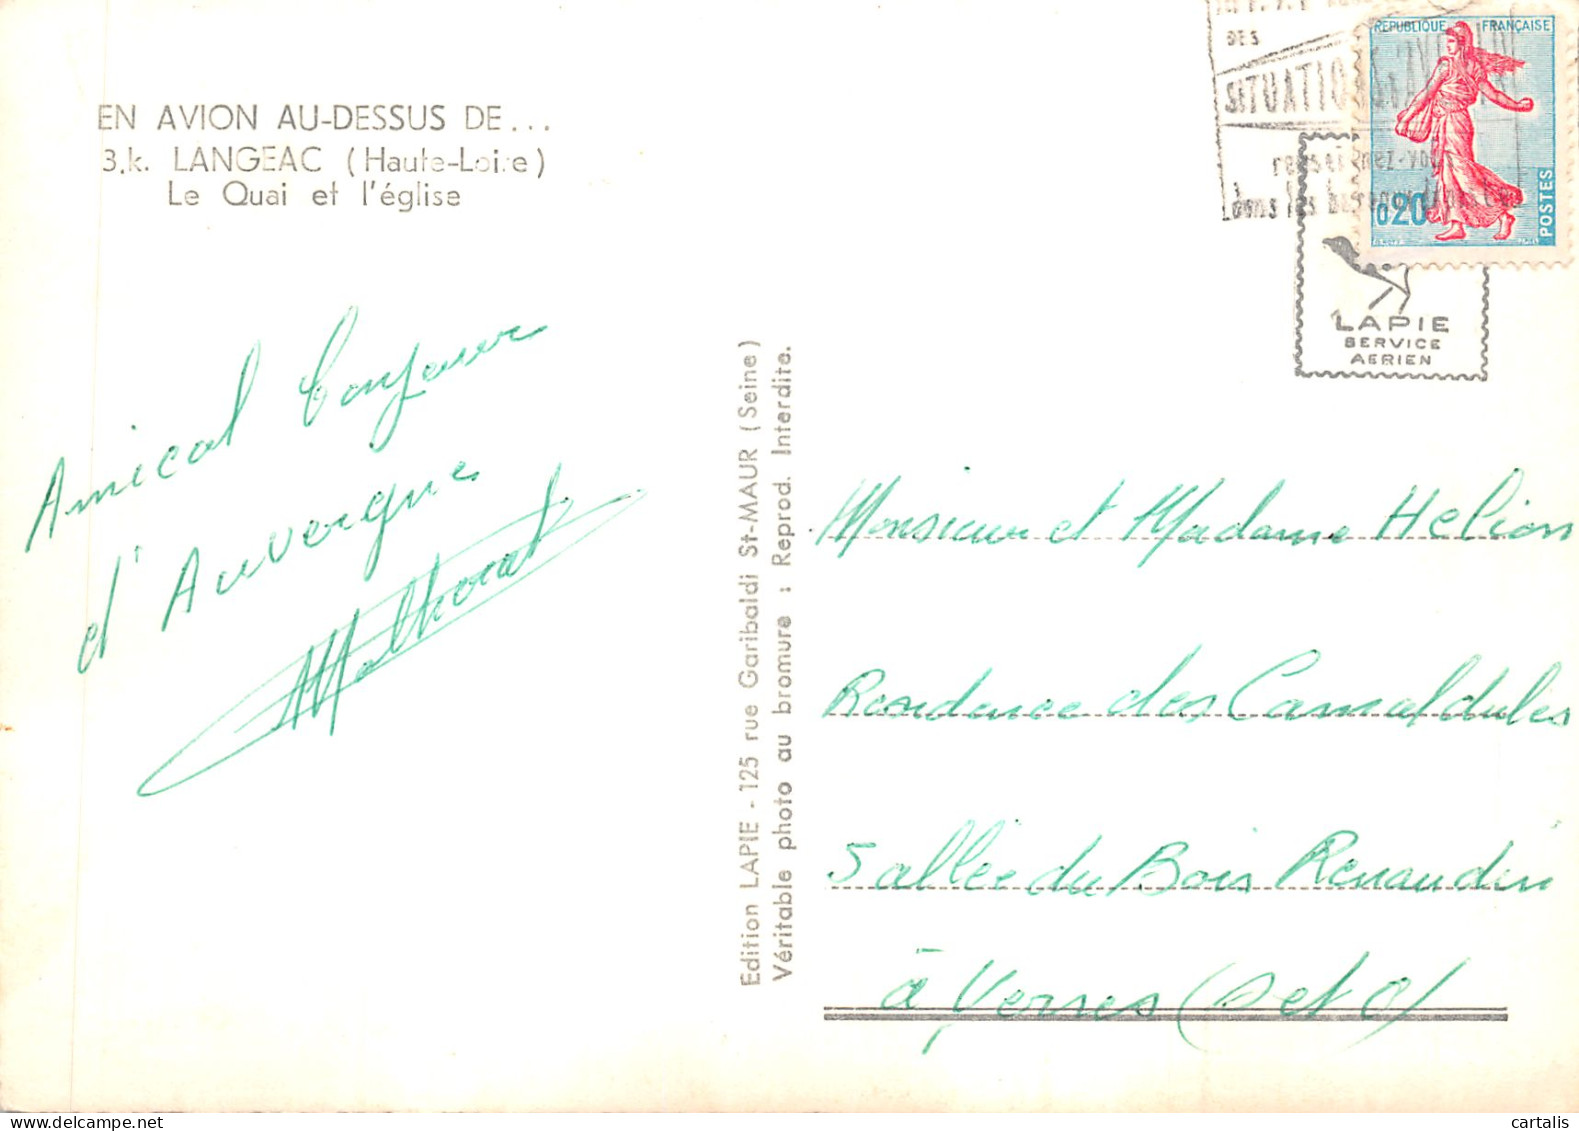 EN AVION AU-DESSUS DE...
3.k. LANGEAC (Haute-Loire)
Le Quai et l'église
Amical bonjour
d'Auvergne
Malhomat
Edition LAPIE - 125 rue Garibaldi St-MAUR (Seine)
Véritable photo au bromure : Reprod. Interdite.
DES
SITUATIONS D'AVENIR
renseignez-vous
dans les bureaux de poste
REPUBLIQUE FRANÇAISE
0,20
POSTES
LAPIE
SERVICE
AERIEN
Monsieur et Madame Helion
Residence des Camaldules
5 allée du Bois Renaudin
à Yerres (S et O)
cartalis